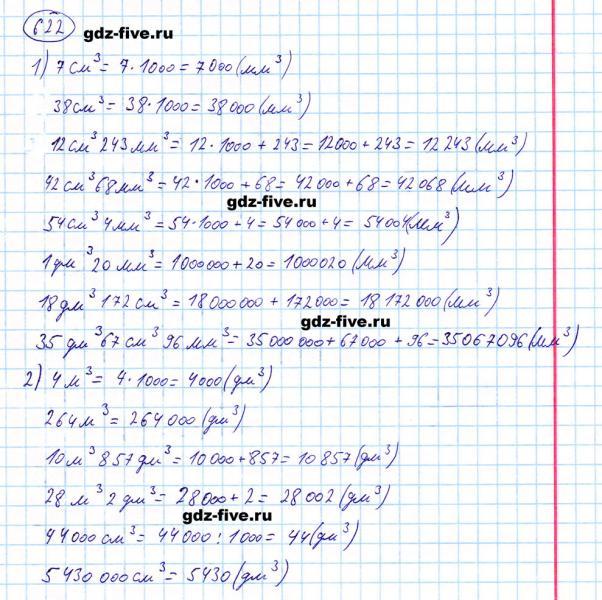 622 gdz-five.ru
1) 7 см³ = 7 · 1000 = 7000 (мм³)
38 см³ = 38 · 1000 = 38 000 (мм³)
12 см³ 243 мм³ = 12 · 1000 + 243 = 12000 + 243 = 12 243 (мм³)
42 см³ 68 мм³ = 42 · 1000 + 68 = 42 000 + 68 = 42 068 (мм³)
gdz-five.ru
54 см³ 4 мм³ = 54 · 1000 + 4 = 54 000 + 4 = 54 004 (мм³)
1 дм³ 20 мм³ = 1000000 + 20 = 1000020 (мм³)
18 дм³ 172 см³ = 18 000 000 + 172 000 = 18 172 000 (мм³)
gdz-five.ru
35 дм³ 67 см³ 96 мм³ = 35 000 000 + 67 000 + 96 = 35 067 096 (мм³)
2) 4 м³ = 4 · 1000 = 4000 (дм³)
264 м³ = 264 000 (дм³)
10 м³ 857 дм³ = 10 000 + 857 = 10 857 (дм³)
28 м³ 2 дм³ = 28 000 + 2 = 28 002 (дм³)
gdz-five.ru
44 000 см³ = 44 000 : 1000 = 44 (дм³)
5 430 000 см³ = 5430 (дм³)